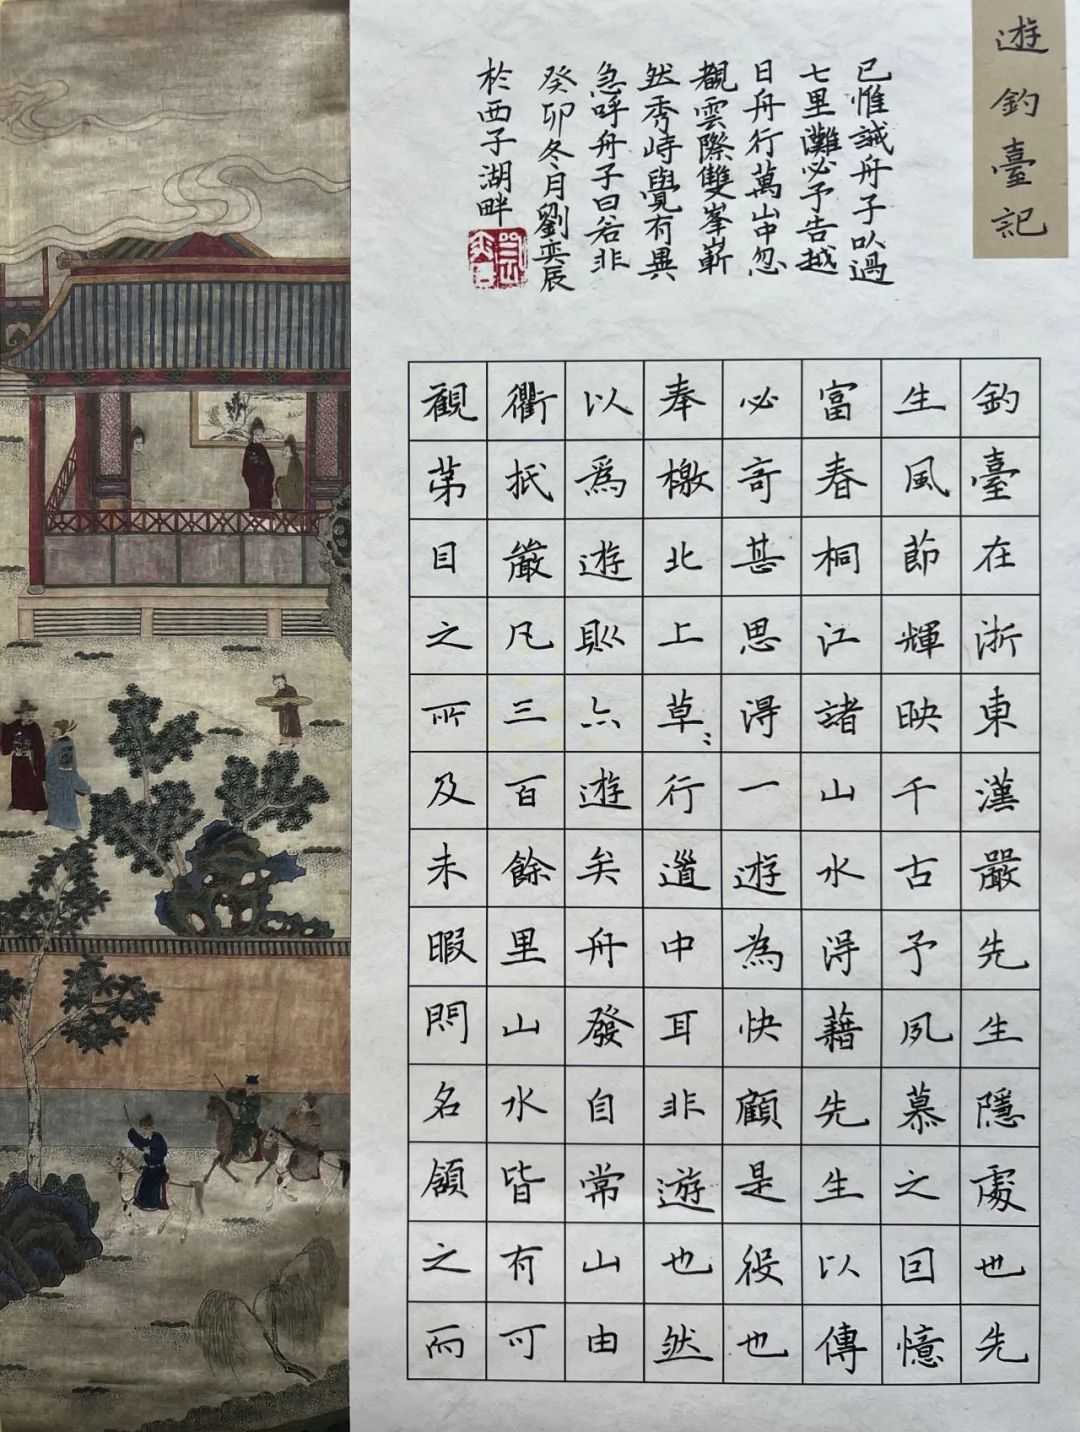 遊釣臺記
釣臺在浙東漢嚴先生隱處也先
生風節輝映千古予夙慕之回憶
富春桐江諸山水得藉先生以傳
必奇甚思得一遊為快顧是役也
奉檄北上草〻行道中耳非遊也然
以爲遊則亦遊矣舟發自常山由
衢抵嚴凡三百餘里山水皆有可
觀苐目之所及未暇問名頷之而
已惟誡舟子以過
七里灘必予告越
日舟行萬山中忽
覩雲際雙峯嶄
然秀峙覺有異
急呼舟子曰若非
癸卯冬月劉奕辰
於西子湖畔